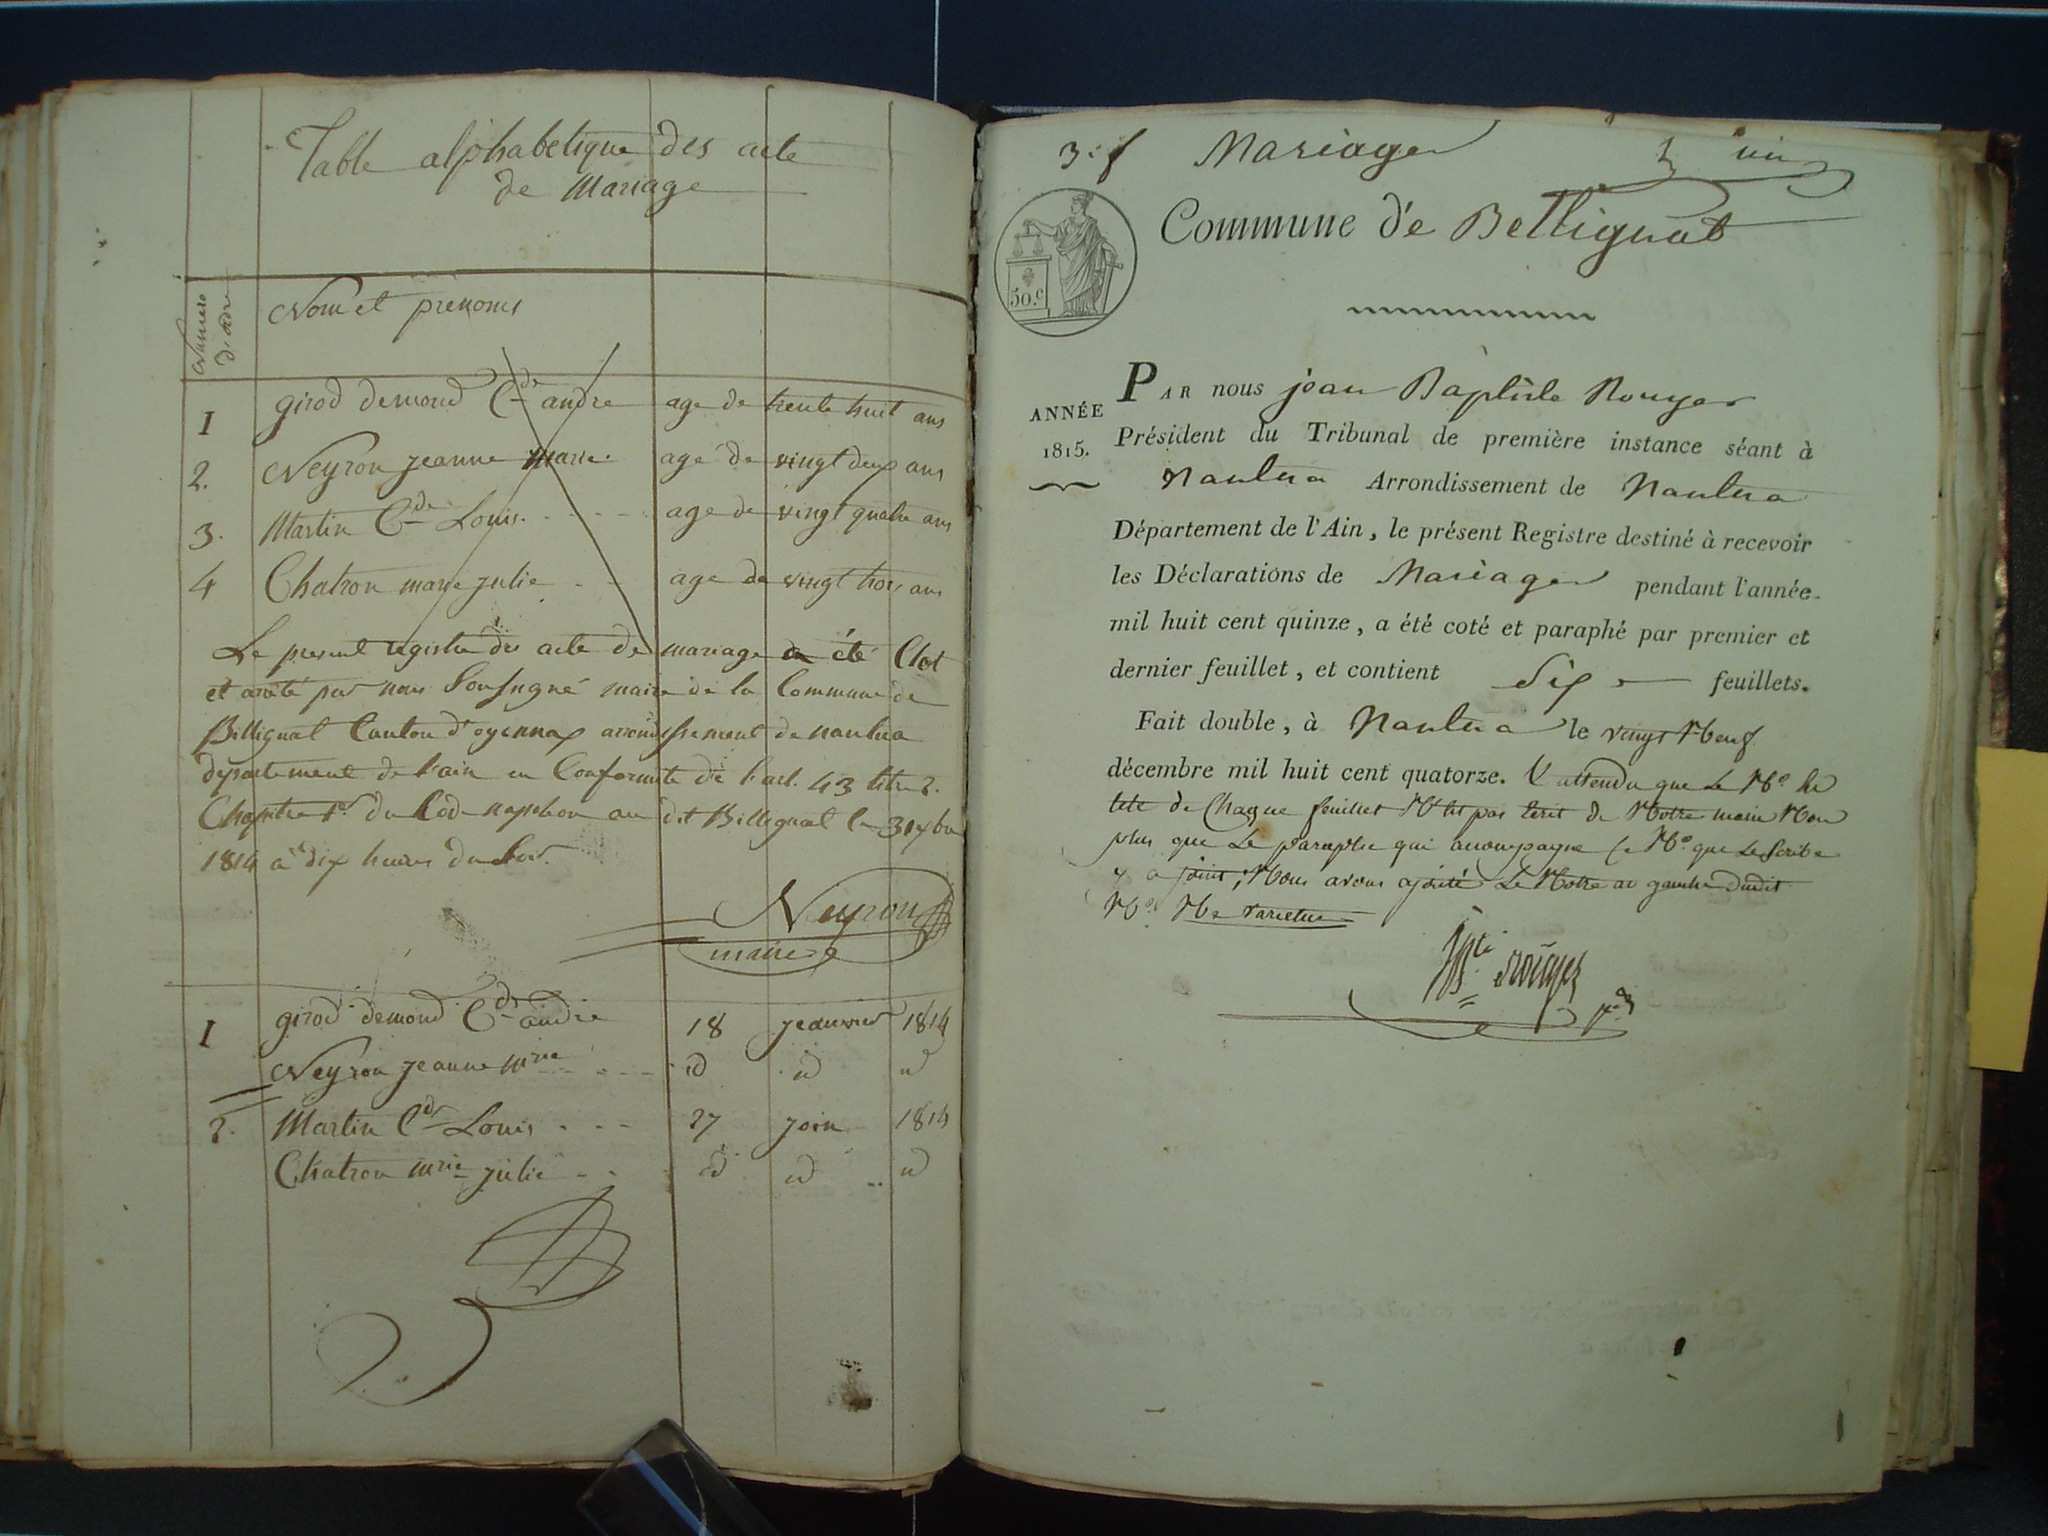 Table alphabetique des acte
de Mariage
Numero
d'ordre
Nom et prenoms
1 girod demond Cde andre age de trente huit ans
2. Neyron jeanne marie. age de vingt deux ans
3. Martin Cde Louis. age de vingt quatre ans
4 Chatron marie julie age de vingt trois ans
Le present registre des acte de mariage a été Clot
et areté par nous Sousigné maire de la Commune de
Billignat Canton d'oyennax arrondissement de nantua
departement de l'ain en Conformité de l'art. 43 titre 2.
Chapitre 1er du Code napoleon au dit Billignat le 31 xbre
1814 a dix heures du Soir.
Neyron
maire
1 girod demond Cde andre 18 jeanvier 1814
Neyron jeanne mrie id id id
2. Martin Cde Louis 27 join 1814
Chatron mrie julie id id id
3.f Mariages un
Commune de Bellignat
50.c
ANNÉE
1815.
PAR nous jean Baptiste Rouyer
Président du Tribunal de première instance séant à
Nantua Arrondissement de Nantua
Département de l'Ain, le présent Registre destiné à recevoir
les Déclarations de Mariages pendant l'année
mil huit cent quinze, a été coté et paraphé par premier et
dernier feuillet, et contient Six feuillets.
Fait double, à Nantua le vingt Neuf
décembre mil huit cent quatorze. & attendu que Le No. En
tete de Chaque feuillet N'est pas Ecrit de Notre main Non
plus que Le paraphe qui accompagne Ce No. que Le Scribe
y a joint; Nous avons ajouté Le Notre au gauche dudit
No. Ne varietur
Bte Rouyer